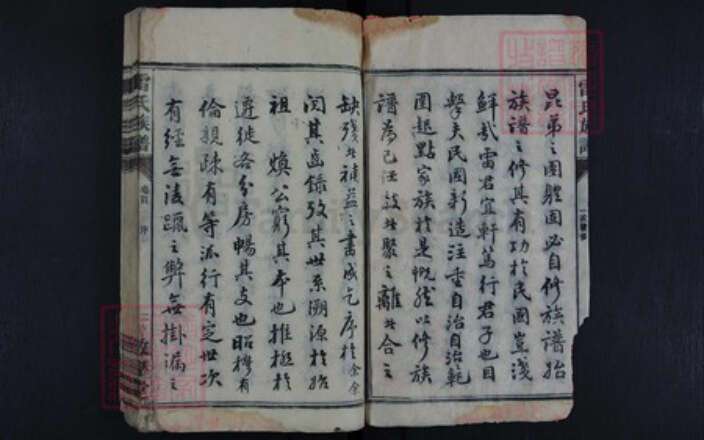 昆弟之團體固必自修族譜始
族譜之修其有功於民國豈淺
鮮哉雷君宜軒篤行君子也目
擊夫民國新造注重自治自治範
圍起點家族於是慨然以修族
譜為己任散者聚之離者合之
缺殘者補益之書成乞序於余余
閱其齒錄攷其世系溯源於始
祖 煥公窮其本也推極於
遷徙各分房暢其支也昭穆有
倫親疎有等流行有定世次
有經無淩躐之弊無掛漏之
雷氏族譜
卷首 序